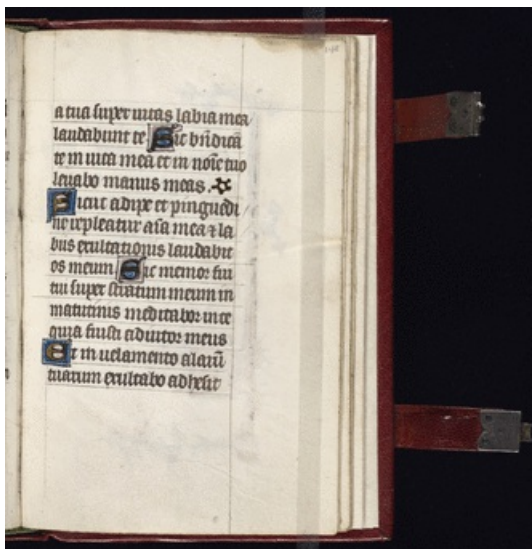 a tua super uitas labia mea
laudabunt te Sic bñdicā
te m uita mea et in noie tuo
leuabo manus meas.
Sicut adipe et pinguedi
ne repleatur aīa mea & la
bus exultationis laudabit
os meum Sic memor fui
tui super stratum meum in
matutinis meditabor in te
quia fuisti adiutor meus
Et in uelamento alarū
tuarum exultabo adhesit